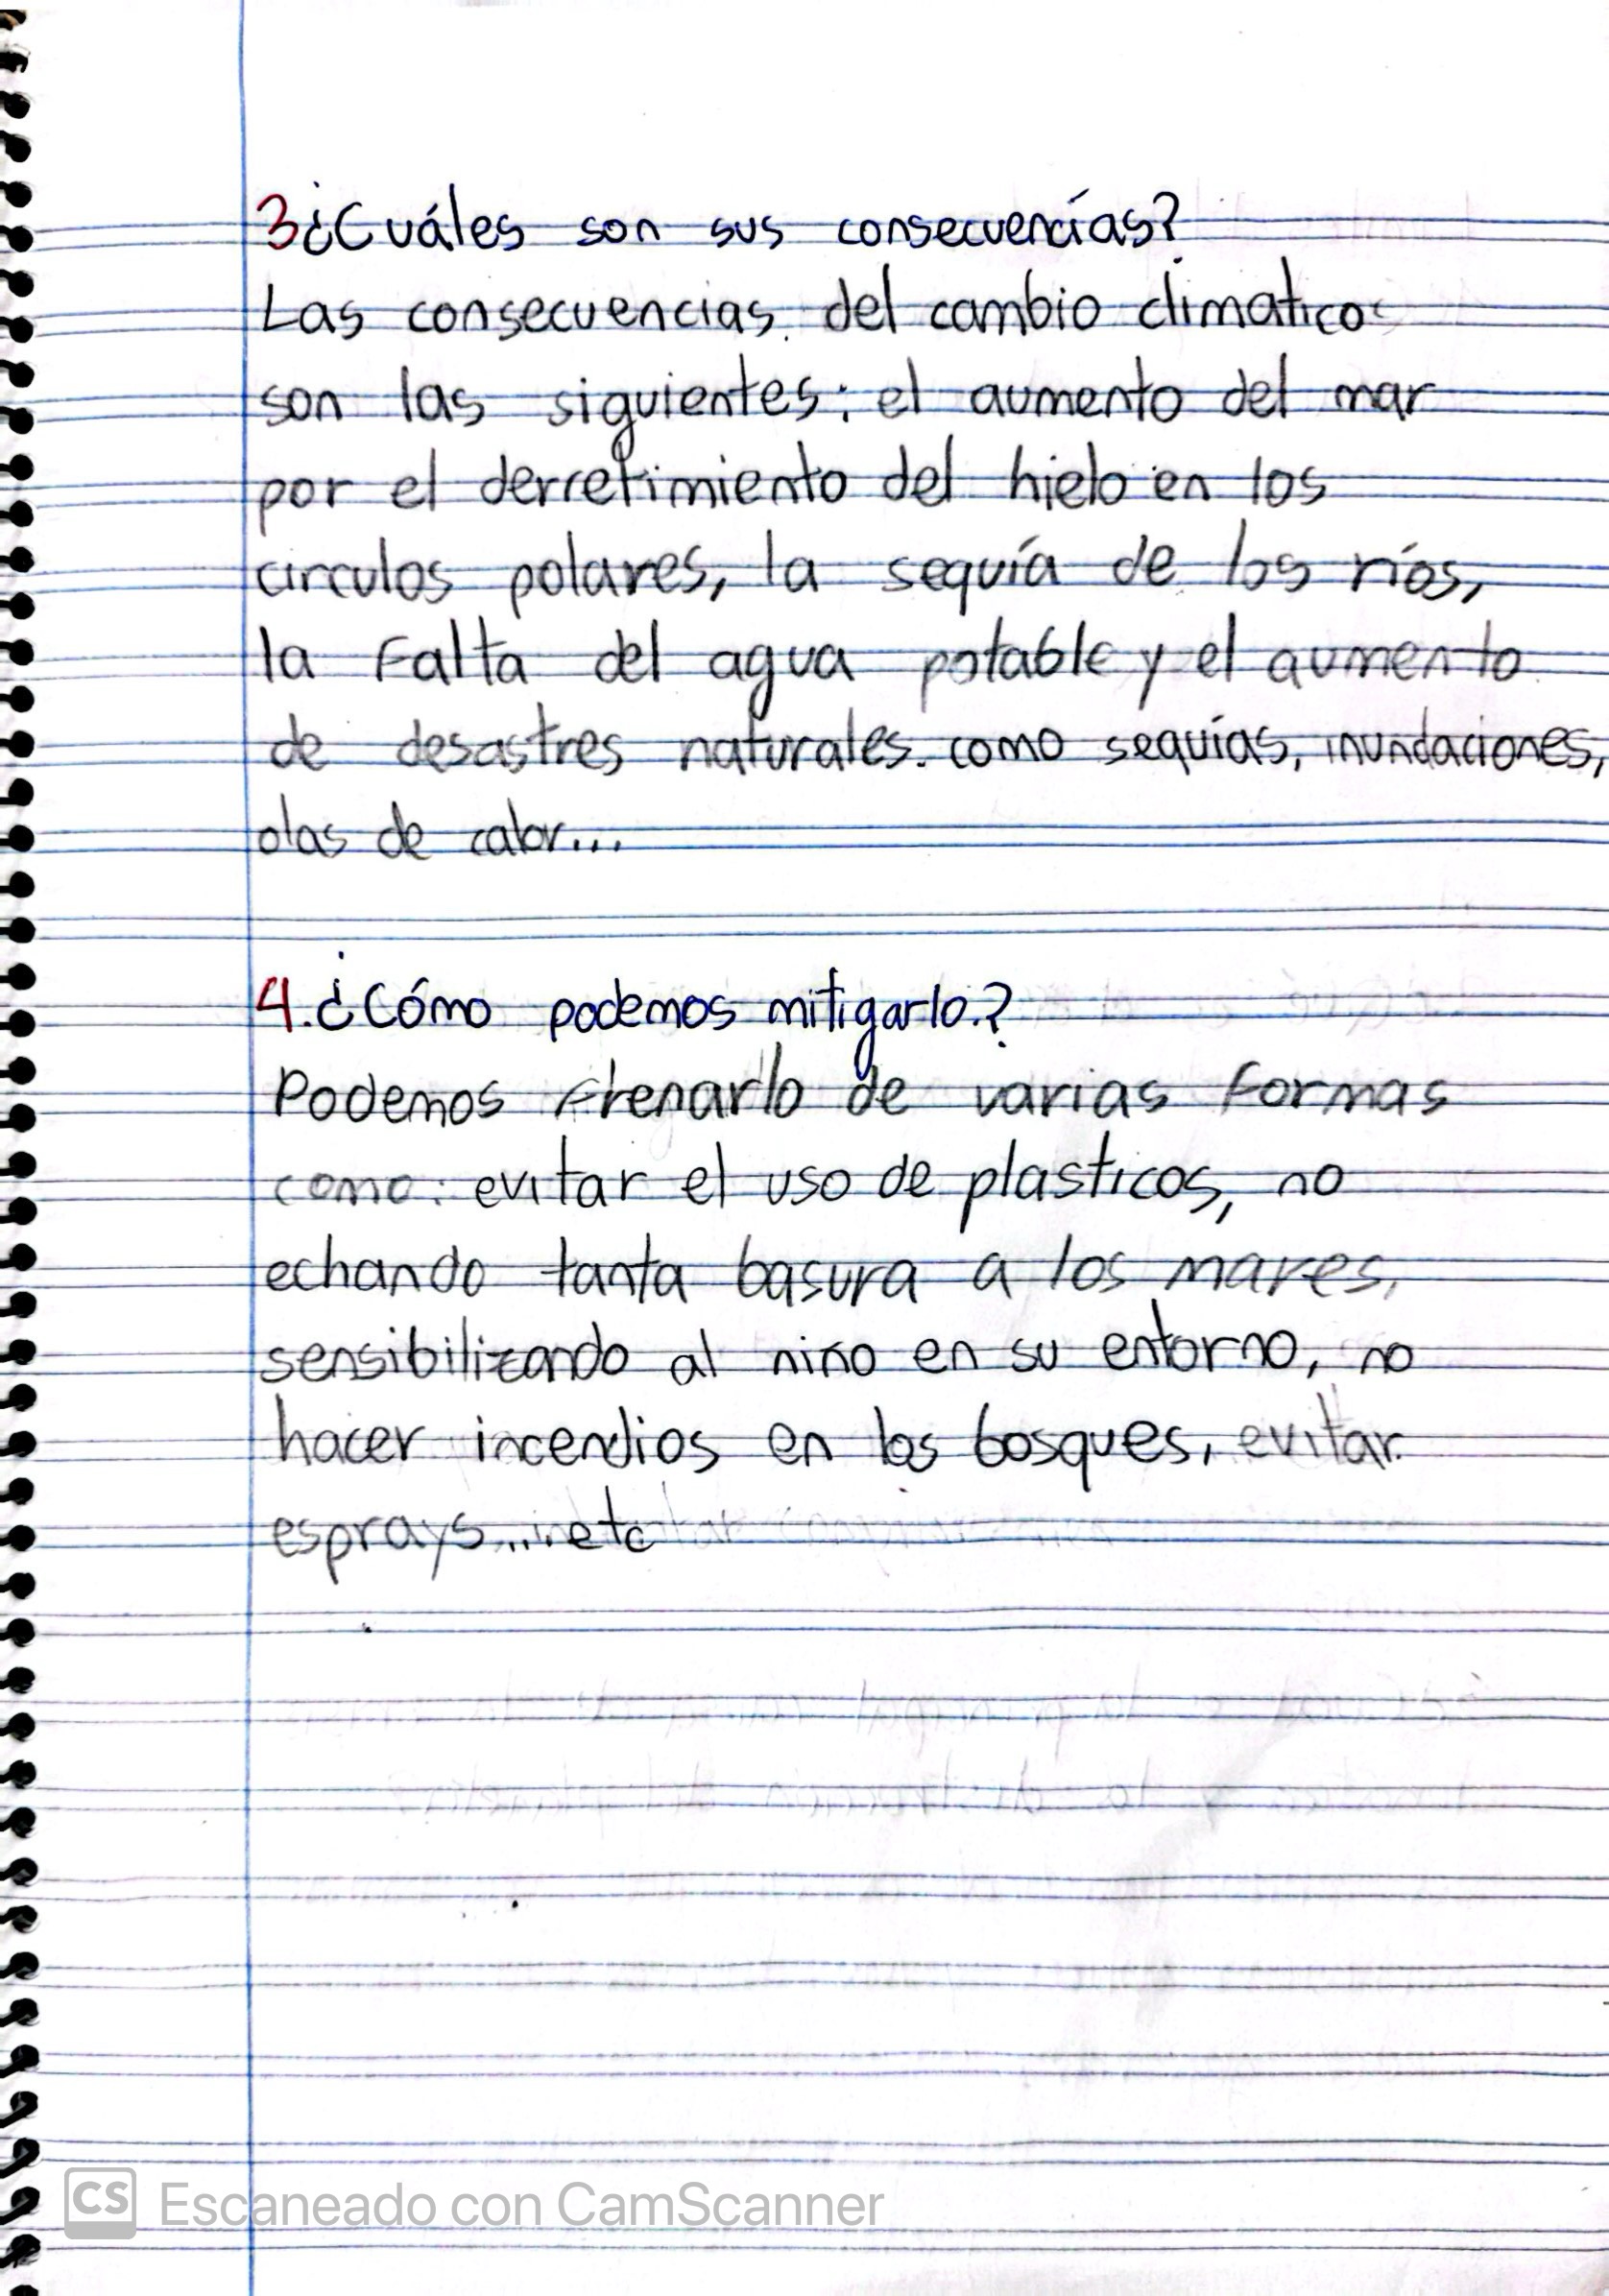 3¿Cuáles son sus consecuencías?
Las consecuencias del cambio climatico
son las siguientes: el aumento del mar
por el derretimiento del hielo en los
circulos polares, la sequía de los ríos,
la Falta del agua potable y el aumento
de desastres naturales. como sequías, inundaciones,
olas de calor...
4.¿Cómo podemos mitigarlo.?
Podemos frenarlo de varias Formas
como: evitar el uso de plasticos, no
echando tanta basura a los mares,
sensibilizando al niño en su entorno, no
hacer incendios en los bosques, evitar
esprays... etc
CS Escaneado con CamScanner